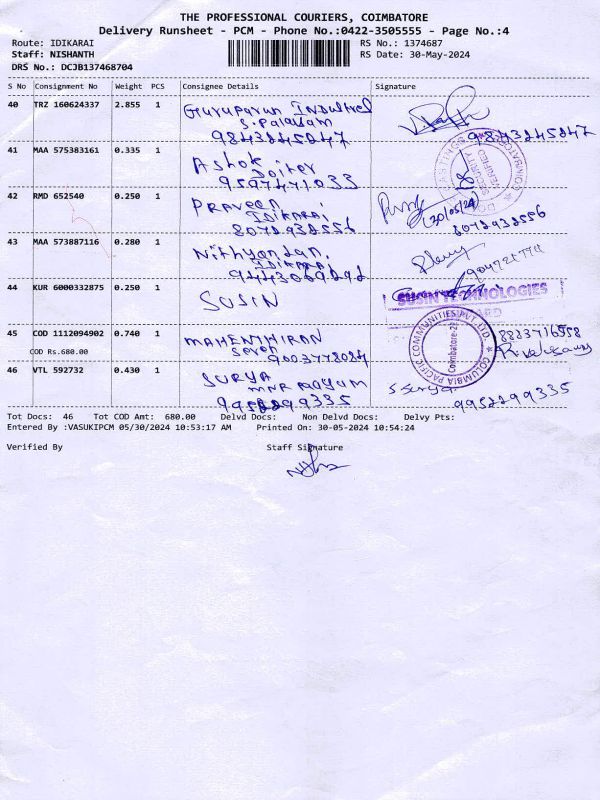 THE PROFESSIONAL COURIERS, COIMBATORE
Delivery Runsheet - PCM - Phone No.:0422-3505555 - Page No.:4
Route: IDIKARAI RS No.: 1374687
Staff: NISHANTH RS Date: 30-May-2024
DRS No.: DCJB137468704
S No Consignment No Weight PCS Consignee Details Signature
40 TRZ 160624337 2.855 1 Guruparun Industrel
S.Palayam
9843245247 9843245247
41 MAA 575383161 0.335 1 Ashok
9597471033
SECURITY
VERIFIED
42 RMD 652540 0.250 1 PRAVEEN
IDIKARAI (30/05/24)
8072932556 8072932556
43 MAA 573887116 0.280 1 Nithyandan.
IDIKARAI
9443069292
44 KUR 6000332875 0.250 1 SUSIN SUSIN TECHNOLOGIES
45 COD 1112094902 0.740 1 MAHENTHIRAN 8883716558
COD Rs.680.00 9003778084
COLUMBIA PACIFIC COMMUNITIES PVT. LTD.
46 VTL 592732 0.430 1 SURYA S. Surya
9952299335 9952299335
Tot Docs: 46 Tot COD Amt: 680.00 Delvd Docs: Non Delvd Docs: Delvy Pts:
Entered By :VASUKIPCM 05/30/2024 10:53:17 AM Printed On: 30-05-2024 10:54:24
Verified By Staff Signature